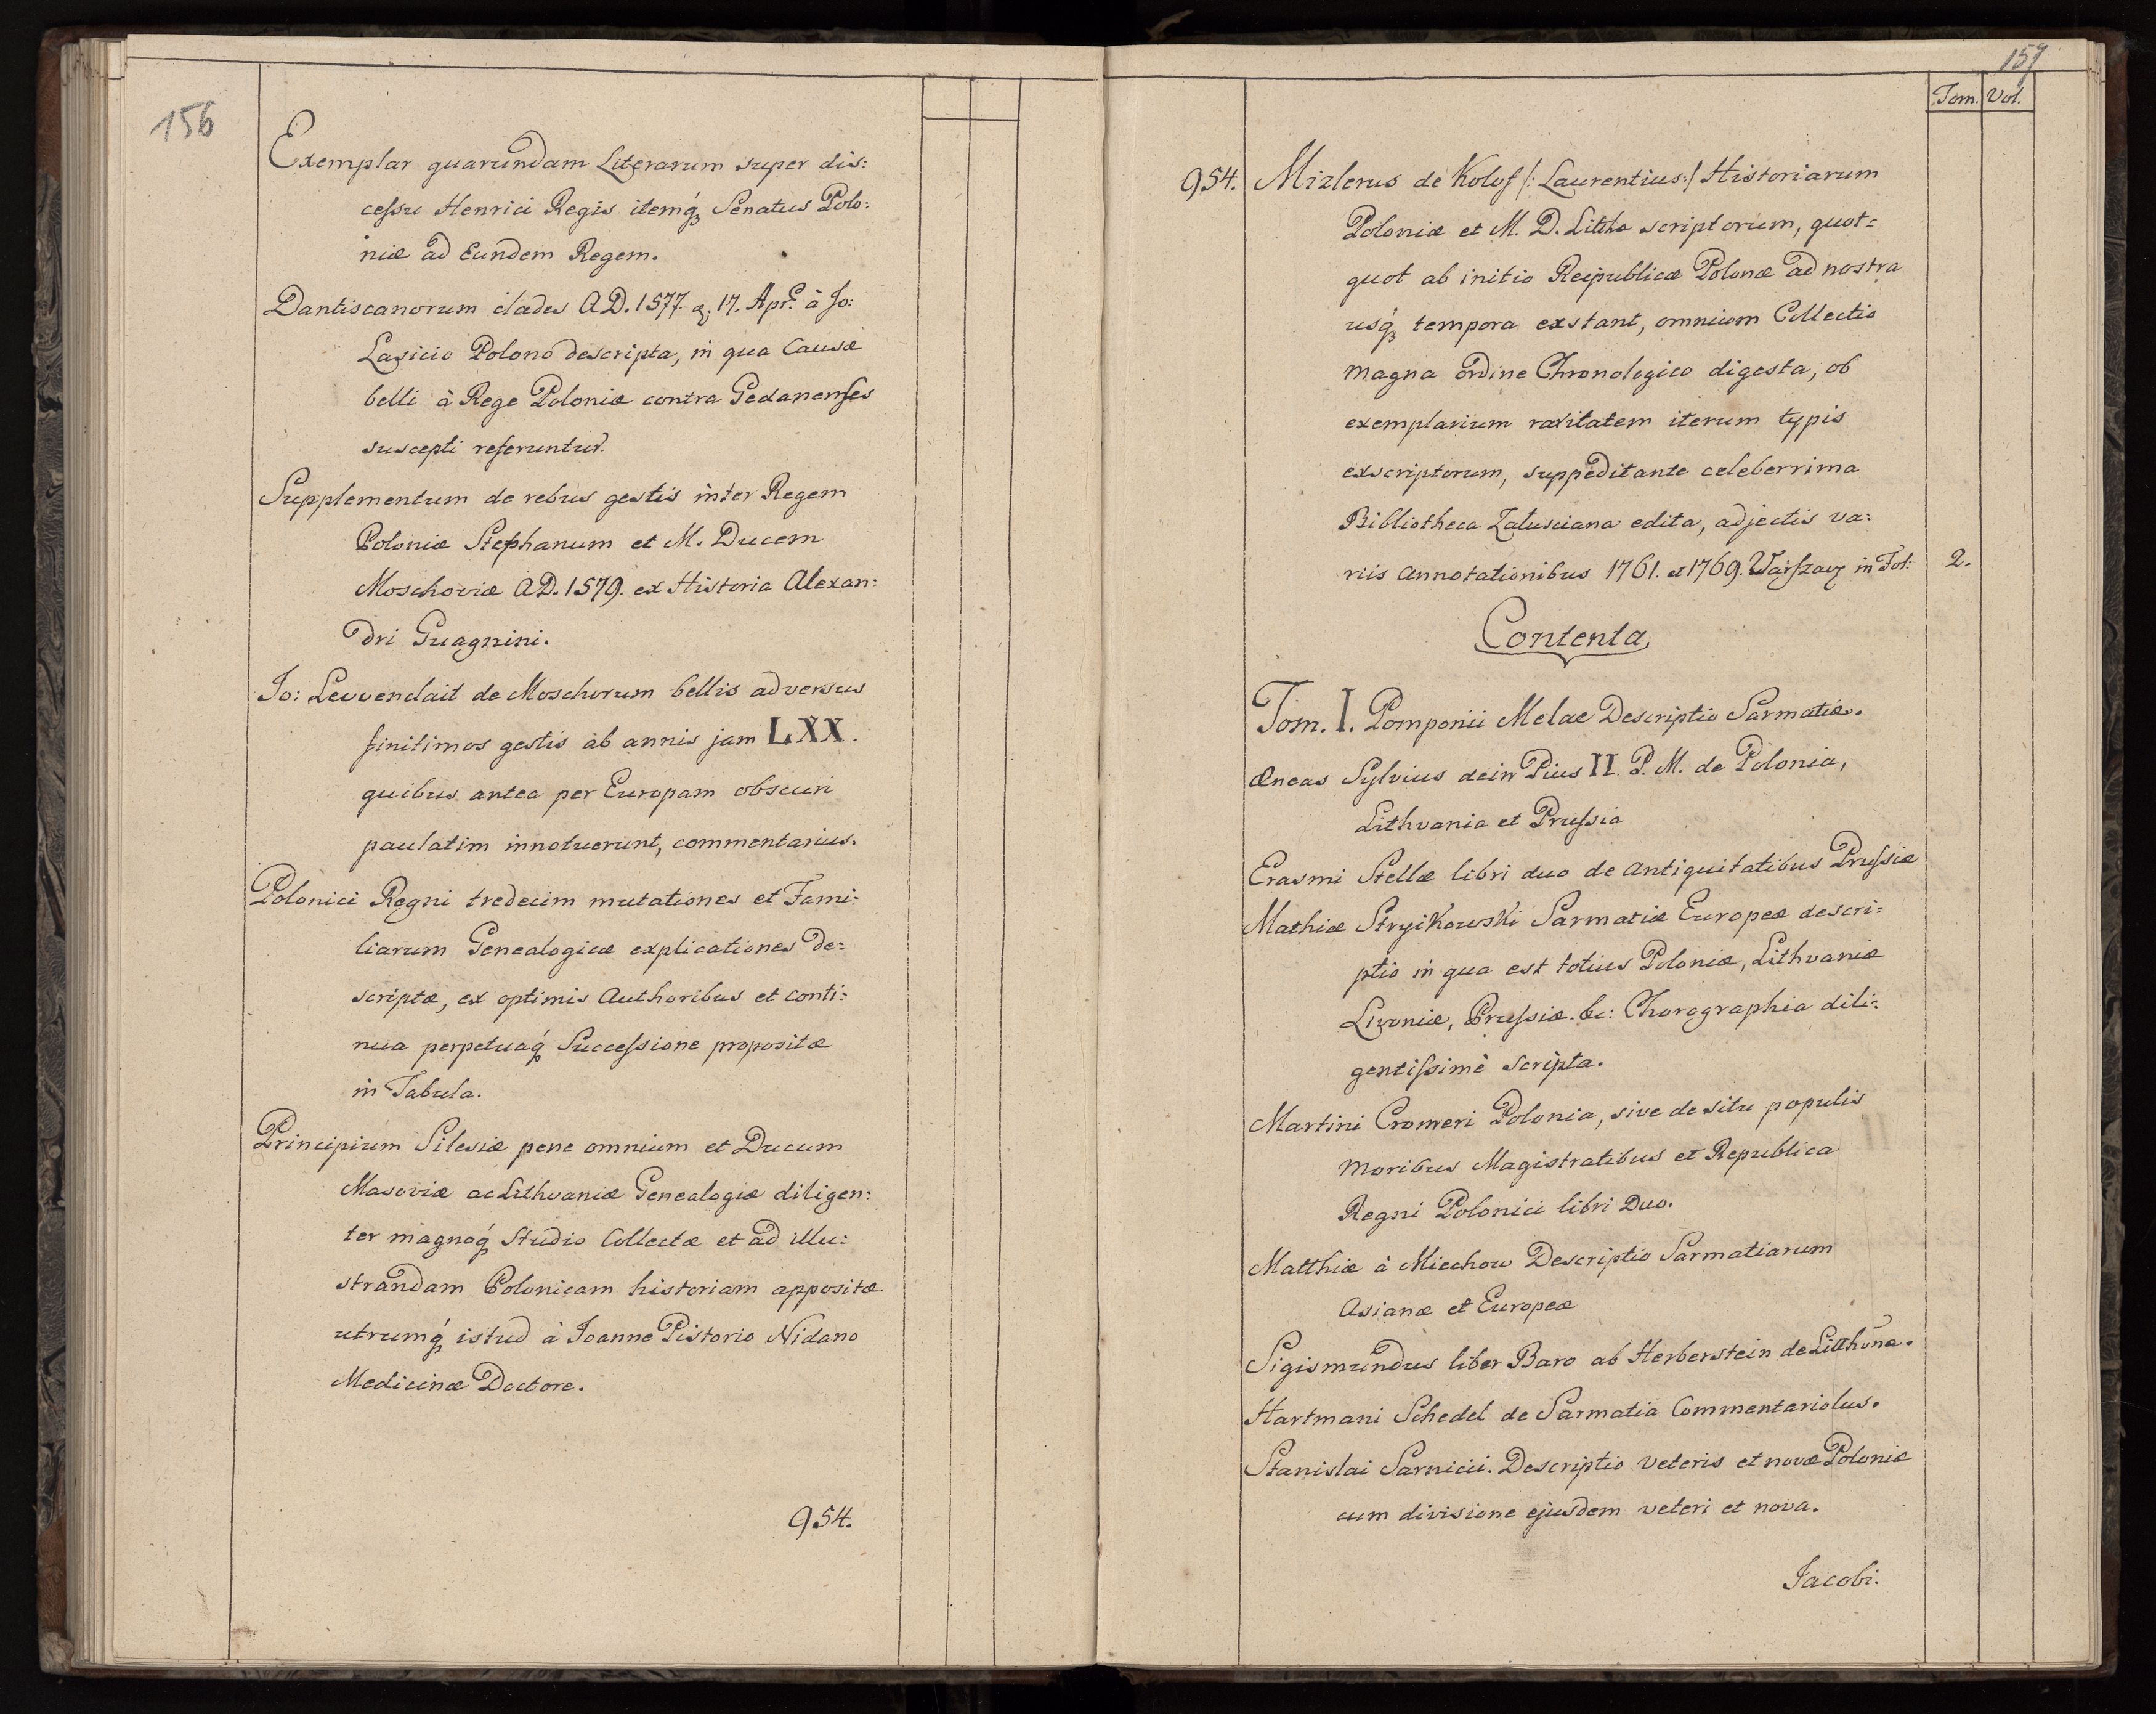 156
Exemplar quarundam Literarum super dis:
cessu Henrici Regis itemq́ꝫ Senatus Polo:
niæ ad Eundem Regem.
Dantiscanorum clades A.D. 1577. d. 17. Apr. à Jo:
Lasicio Polono descripta, in qua Causæ
belli à Rege Poloniæ contra Gedanenses
suscepti referuntur.
Supplementum de rebus gestis inter Regem
Poloniæ Stephanum et M. Ducem
Moschoviæ A.D. 1579. ex Historia Alexan:
dri Guagnini.
Jo: Levvenclait de Moschorum bellis adversus
finitimos gestis ab annis jam LXX.
quibus antea per Europam obscuri
paulatim innotuerunt, commentarius.
Polonici Regni tredecim mutationes et Fami:
liarum Genealogicæ explicationes de:
scriptæ, ex optimis Authoribus et conti:
nua perpetuaq́ꝫ Successione propositæ
in Tabula.
Principium Silesiæ pene omnium et Ducum
Masoviæ ac Lithvaniæ Genealogiæ diligen:
ter magnoq́ꝫ Studio Collectæ et ad illu:
strandam Polonicam historiam appositæ
utrumq́ꝫ istud à Joanne Pistorio Nidano
Medicinæ Doctore.
954.
157
Tom. Vol.
954. Mizlerus de Kolof /: Laurentius:/ Historiarum
Poloniæ et M. D. Litthæ scriptorum, quot=
quot ab initio Reipublicæ Polonæ ad nostra
usq́ꝫ tempora exstant, omnium Collectio
magna ordine Chronologico digesta, ob
exemplarium raritatem iterum typis
exscriptorum, suppeditante celeberrima
Bibliotheca Zalusciana edita, adjectis va:
riis Annotationibus 1761. et 1769. Warszaw in Fol: 2.
Contenta
Tom. I. Pomponii Melae Descriptio Sarmatiæ.
Æneas Sylvius dein Pius II. P. M. de Polonia,
Lithvania et Prussia
Erasmi Stellæ libri duo de Antiquitatibus Prussiæ
Mathiæ Stryikowski Sarmatiæ Europeæ descri:
ptio in qua est totius Poloniæ, Lithvaniæ
Livoniæ, Prussiæ. &c: Chorographia dili:
gentissimè scripta.
Martini Cromeri Polonia, sive de situ populis
Moribus Magistratibus et Republica
Regni Polonici libri Duo.
Matthiæ à Miechow Descriptio Sarmatiarum
Asianæ et Europeæ
Sigismundus liber Baro ab Herberstein de Litthuna.
Hartmani Schedel de Sarmatia Commentariolus.
Stanislai Sarnicii. Descriptio veteris et novæ Poloniæ
cum divisione ejusdem veteri et nova.
Jacobi.